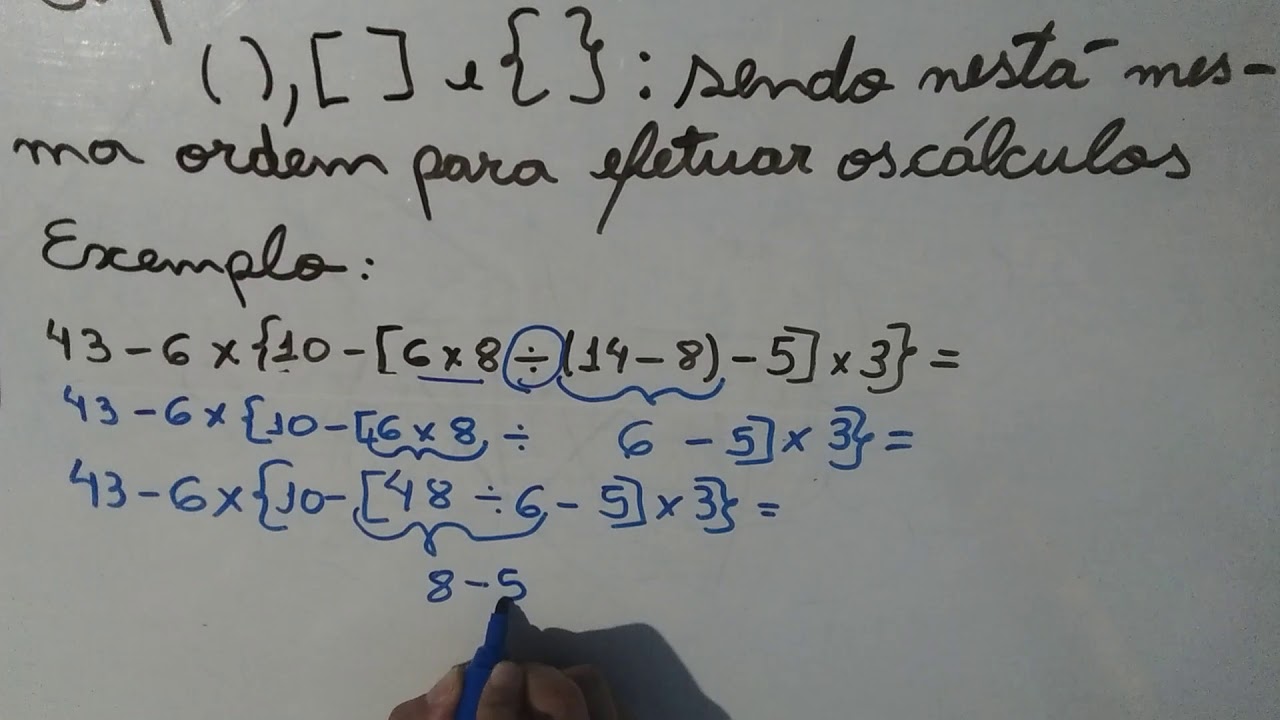 ( ), [ ] e { } : sendo nesta mes-
ma ordem para efetuar os cálculos
Exemplo:
43 - 6 x {10 - [6 x 8 ÷ (14 - 8) - 5] x 3} =
43 - 6 x {10 - [6 x 8 ÷ 6 - 5] x 3} =
43 - 6 x {10 - [48 ÷ 6 - 5] x 3} =
8 - 5